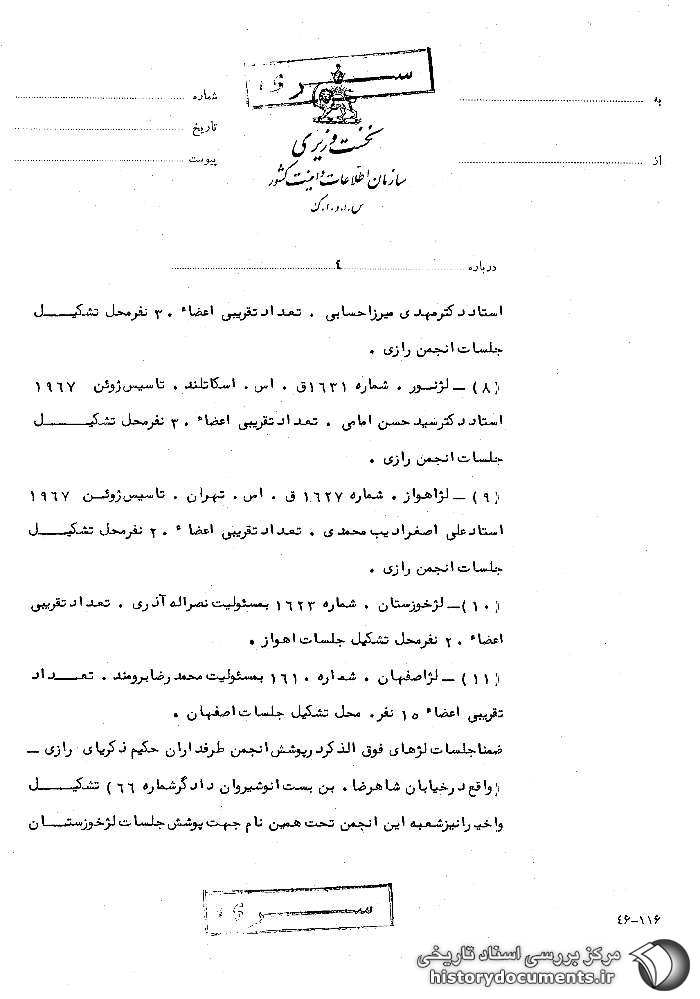 سری
به
شماره
تاریخ
از
پیوست
نخست وزیری
سازمان اطلاعات و امنیت کشور
س.ا.و.ا.ک
درباره ٤
استاد دکتر مهدی میرزا حسابی . تعداد تقریبی اعضاء ۳۰ نفر محل تشکیل
جلسات انجمن رازی .
(۸) ــ لژنور . شماره ۱۶۳۱ ق . اس . اسکاتلند . تاسیس ژوئن ۱۹۶۷
استاد دکتر سید حسن امامی . تعداد تقریبی اعضاء ۳۰ نفر محل تشکیل
جلسات انجمن رازی .
(۹) ــ لژ اهواز . شماره ۱۶۲۷ ق . اس . تهران . تاسیس ژوئن ۱۹۶۷
استاد علی اصغر ادیب محمدی . تعداد تقریبی اعضاء ۲۰ نفر محل تشکیل
جلسات انجمن رازی .
(۱۰) ــ لژ خوزستان . شماره ۱۶۲۳ بمسئولیت نصراله آذری . تعداد تقریبی
اعضاء ۲۰ نفر محل تشکیل جلسات اهواز .
(۱۱) ــ لژ اصفهان . شماره ۱۶۱۰ بمسئولیت محمد رضا برومند . تعداد
تقریبی اعضاء ۱۵ نفر. محل تشکیل جلسات اصفهان .
ضمنا جلسات لژهای فوق الذکر در پوشش انجمن طرفداران حکیم ذکریای رازی ــ
(واقع در خیابان شاهرضا . بن بست انوشیروان دادگر شماره ۶۶) تشکیل
و اخیرا نیز شعبه این انجمن تحت همین نام جهت پوشش جلسات لژ خوزستان
سری
٤۶-۱۱۶
مرکز بررسی اسناد تاریخی
historydocuments.ir